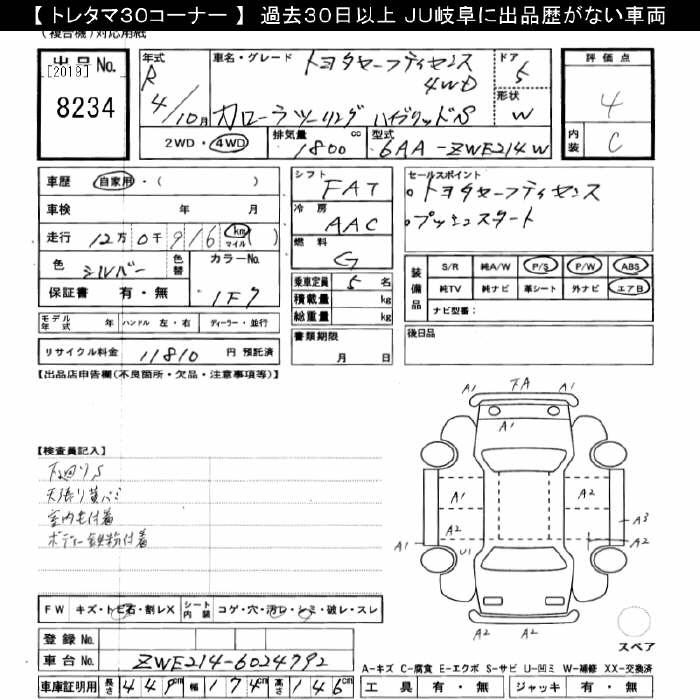 【トレタマ30コーナー】 過去30日以上 JU岐阜に出品歴がない車両
(複合機)対応用紙
出品No.
[2019]
8234
年式
R
4/10月
車名・グレード
トヨタセーフティセンス
4WD
カローラツーリング ハイブリッドS
ドア
5
形状
W
2WD・4WD
排気量
1800 cc
型式
6AA-ZWE214W
評価点
4
内装
C
車歴 自家用・( )
車検 年 月
走行 12万0千916 km マイル ( )
色 シルバー 色替 カラーNo.
1F7
保証書 有・無
シフト
FAT
冷房
AAC
燃料
G
乗車定員 5 名
積載量 kg
総重量 kg
セールスポイント
・トヨタセーフティセンス
・プッシュスタート
装備品
S/R 純A/W P/S P/W ABS
純TV 純ナビ 革シート 外ナビ エアB
ナビ型番:
モデル年式 年 ハンドル 左・右 ディーラー・並行
書類期限
月 日
後日品
リサイクル料金 11810 円 預託済
【出品店申告欄(不良箇所・欠品・注意事項等)】
A1 FA A1
A1
【検査員記入】
下廻りS
天張り黄バミ
室内毛付着
ボディー鉄粉付着
A1 A2
A2 A3
A1 U1 A2
A2 A2
スペア
FW キズ・トビ石・割レX シート内装 コゲ・穴・汚レ・シミ・破レ・スレ
登録No.
車台No. ZWE214-6024792
車庫証明用 長さ 449cm 幅 174cm 高さ 146cm
A-キズ C-腐食 E-エクボ S-サビ U-凹ミ W-補修 XX-交換済
工具 有・無 ジャッキ 有・無